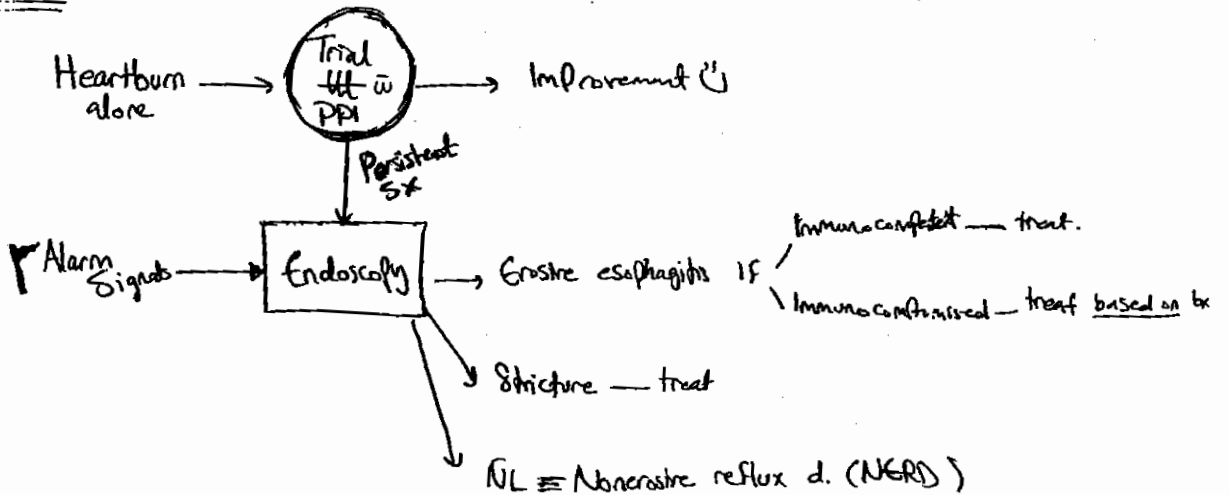 Heartburn
alone
Trial
ttt w̄
PPI
Improvement ü
Persistent
sx
Alarm
Signals
Endoscopy
Erosive esophagitis if
Immunocompetent — treat.
Immunocompromised — treat based on bx
Stricture — treat
NL ≡ Nonerosive reflux d. (NERD)